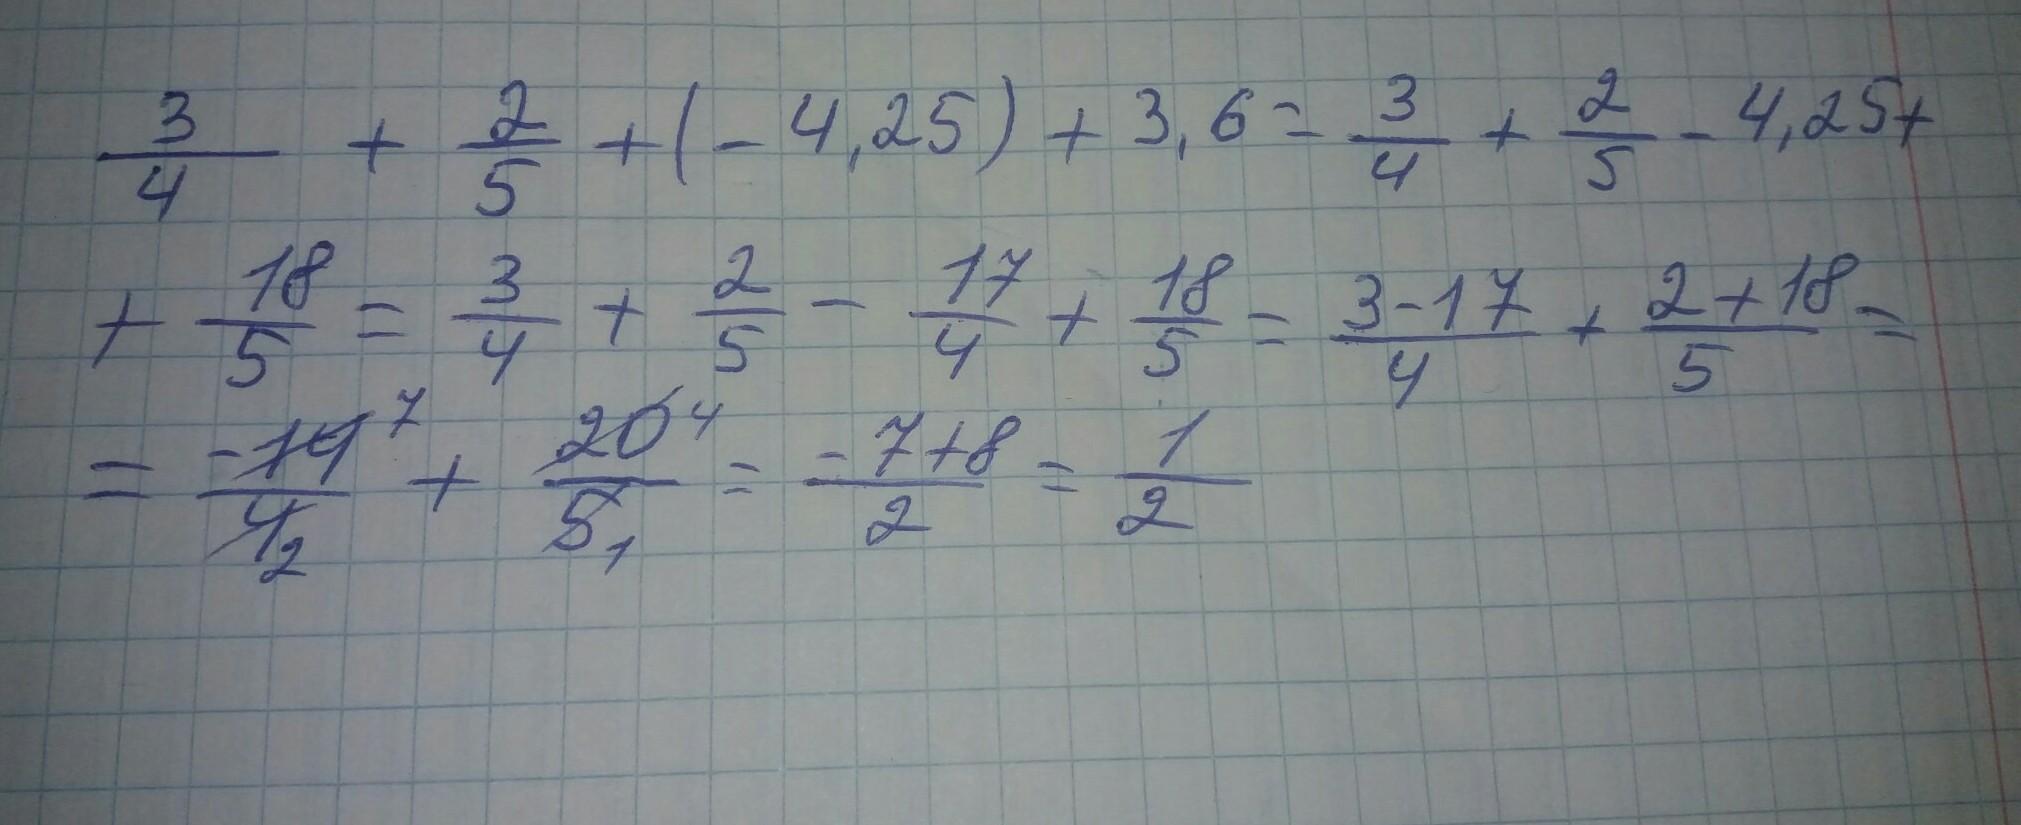 3/4 + 2/5 + (-4,25) + 3,6 = 3/4 + 2/5 - 4,25 +
+ 18/5 = 3/4 + 2/5 - 17/4 + 18/5 = 3-17/4 + 2+18/5 =
= -14 7/4 2 + 20 4/5 1 = -7+8/2 = 1/2